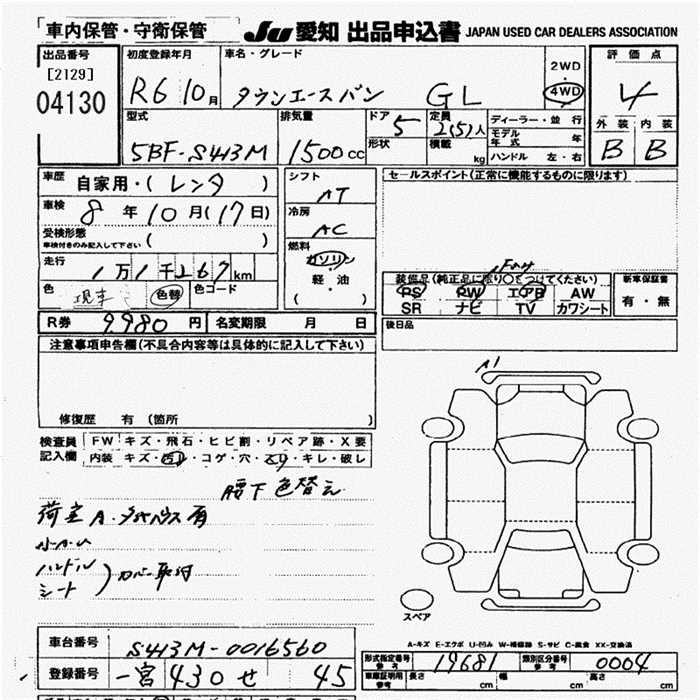 車内保管・守衛保管
JU 愛知 出品申込書 JAPAN USED CAR DEALERS ASSOCIATION
出品番号 初度登録年月 車名・グレード 評価点
[2129] 2WD
04130 R6 10月 タウンエースバン GL 4WD 4
型式 排気量 ドア 5 定員 2(5)人 ディーラー・並行 外装 内装
モデル年式 年
5BF-S413M 1500cc 形状 積載 kg ハンドル 左・右 B B
車歴 自家用・(レンタ) シフト AT セールスポイント(正常に機能するものに限ります)
車検 8年10月(17日) 冷房 AC
受検形態 ( )
車検付きのみ記入して下さい
燃料 ガソリン
走行 1万1千267km 軽・油
( )
装備品(純正品に限り○をつけてください) 新車保証書
色 現車 色替 色コード PS PW エアB AW 有・無
SR ナビ TV カワシート
R券 9980円 名変期限 月 日 後日品
注意事項申告欄(不具合内容等は具体的に記入して下さい)
A1
修復歴 有 (箇所 )
検査員 FW キズ・飛石・ヒビ割・リペア跡・X要
記入欄 内装 キズ・汚れ・コゲ・穴・スレ・キレ・破レ
腰下色替え
荷室A.
ハンドル
シート
カバー取付
スペア
A-キズ E-エクボ U-凹み W-補修跡 S-サビ C-腐食 XX-交換済
車台番号 S413M-0016560
形式指定番号 19681 類別区分番号 0004
参考 参考
登録番号 一宮 430 せ 45
車庫証明用 参考 長さ cm 幅 cm 高さ cm